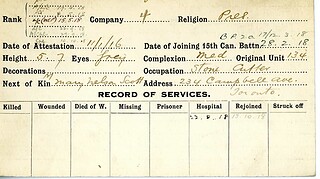 Rank Company 4 Religion Pres.
Date of Attestation 11/1/16 Date of Joining 15th Can. Battn 28.2.18
Height 5.7 Eyes Grey Complexion Med Original Unit 134
Decorations Occupation Stone Cutter
Next of Kin Mary Helen Scott Address 234 Campbell Ave.
Toronto.
RECORD OF SERVICES.
Killed Wounded Died of W. Missing Prisoner Hospital Rejoined Struck off